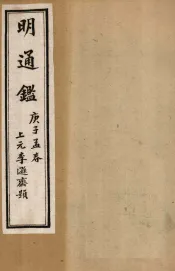 明通鑑
庚子孟春
上元李𣿰齋題